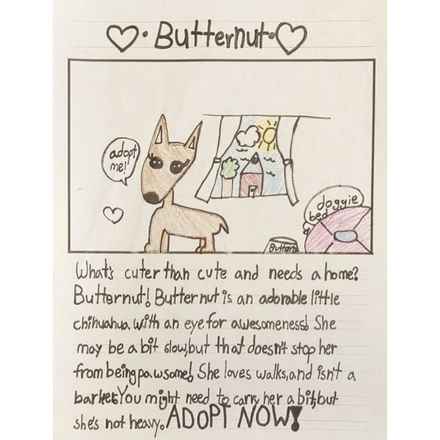 Butternut
adopt
me!
doggie
bed
Butternut
What's cuter than cute and needs a home?
Butternut! Butternut is an adorable little
chihuahua with an eye for awesomeness! She
may be a bit slow, but that doesn't stop her
from being pawsome! She loves walks, and isn't a
barker. You might need to carry her a bit, but
she's not heavy. ADOPT NOW!